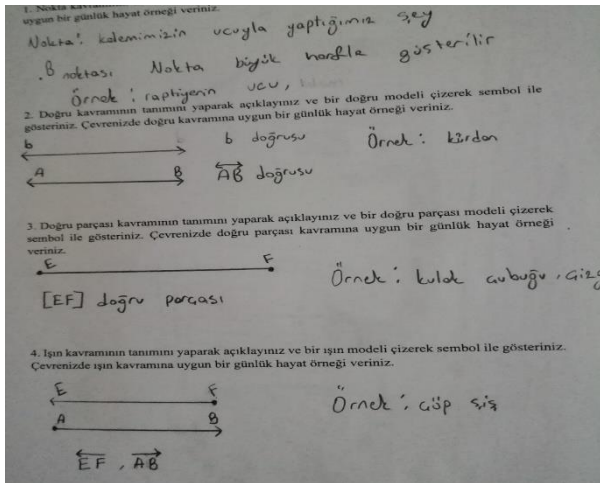 1. Nokta kavramının
uygun bir günlük hayat örneği veriniz.
Nokta: kalemimizin ucuyla yaptığımız şey
.B noktası Nokta büyük harfle gösterilir
Örnek: raptiyenin ucu,
2. Doğru kavramının tanımını yaparak açıklayınız ve bir doğru modeli çizerek sembol ile
gösteriniz. Çevrenizde doğru kavramına uygun bir günlük hayat örneği veriniz.
b b doğrusu Örnek: kürdan
A B AB doğrusu
3. Doğru parçası kavramının tanımını yaparak açıklayınız ve bir doğru parçası modeli çizerek
sembol ile gösteriniz. Çevrenizde doğru parçası kavramına uygun bir günlük hayat örneği
veriniz.
E F
Örnek: kulak çubuğu,
[EF] doğru parçası
4. Işın kavramının tanımını yaparak açıklayınız ve bir ışın modeli çizerek sembol ile gösteriniz.
Çevrenizde ışın kavramına uygun bir günlük hayat örneği veriniz.
E F
Örnek: çöp şiş
A B
EF, AB